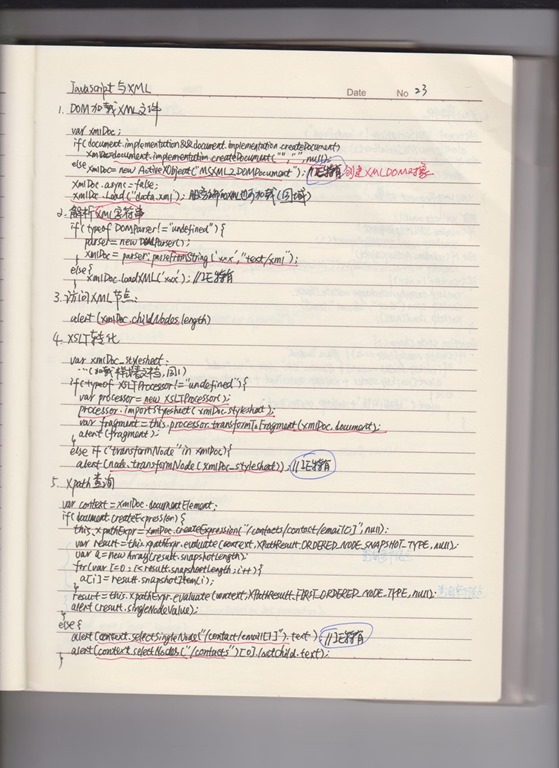 Javascript与XML
Date No 23
1. DOM加载XML文件
var xmlDoc;
if(document.implementation&&document.implementation.createDocument)
xmlDoc=document.implementation.createDocument("","",null);
else xmlDoc=new ActiveXObject('MSXML2.DOMDocument'); //IE特有 创建XMLDOM对象
xmlDoc.async=false;
xmlDoc.load('data.xml');
2. 解析XML字符串
if(typeof DOMParser!="undefined"){
parser=new DOMParser();
xmlDoc=parser.parseFromString('xxx',"text/xml");
}
else{
xmlDoc.loadXML('xxx'); //IE特有
}
3. 访问XML节点:
alert(xmlDoc.childNodes.length)
4. XSLT转化
var xmlDoc_stylesheet
...(加载样式表文档,同1)
if(typeof XSLTProcessor!="undefined"){
var processor=new XSLTProcessor();
processor.importStylesheet(xmlDoc.stylesheet);
var fragment=this.processor.transformToFragment(xmlDoc.document);
alert(fragment);
}
else if("transformNode"in xmlDoc){
alert(node.transformNode(xmlDoc_stylesheet)); //IE特有
}
5. Xpath查询
var context=xmlDoc.documentElement;
if(document.createExpression){
this.xpathExpr=xmlDoc.createExpression("/contacts/contact/email[0]",null);
var result=this.xpathExpr.evaluate(context,XPathResult.ORDERED_NODE_SNAPSHOT_TYPE,null);
var a=new Array(result.snapshotLength);
for(var i=0;i<result.snapshotLength;i++){
a[i]=result.snapshotItem(i);
}
result=this.xpathExpr.evaluate(context,XPathResult.FIRST_ORDERED_NODE_TYPE,null);
alert(result.singleNodeValue);
}
else{
alert(context.selectSingleNode("/contact/email[1]").text); //IE特有
alert(context.selectNodes("/contacts")[0].text);
}